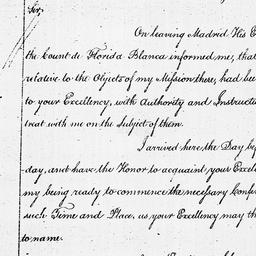 Sir,
On leaving Madrid His E
the Count de Florida Blanca informed me, that
relative to the Objects of my Mission there, had bee
to your Excellency, with Authority and Instructi
treat with me on the Subject of them.
I arrived here the Day be
day, and have the Honor to acquaint, your Excel
my being ready to commence the necessary Confe
such Time and Place, as, your Excellency may th
to name.